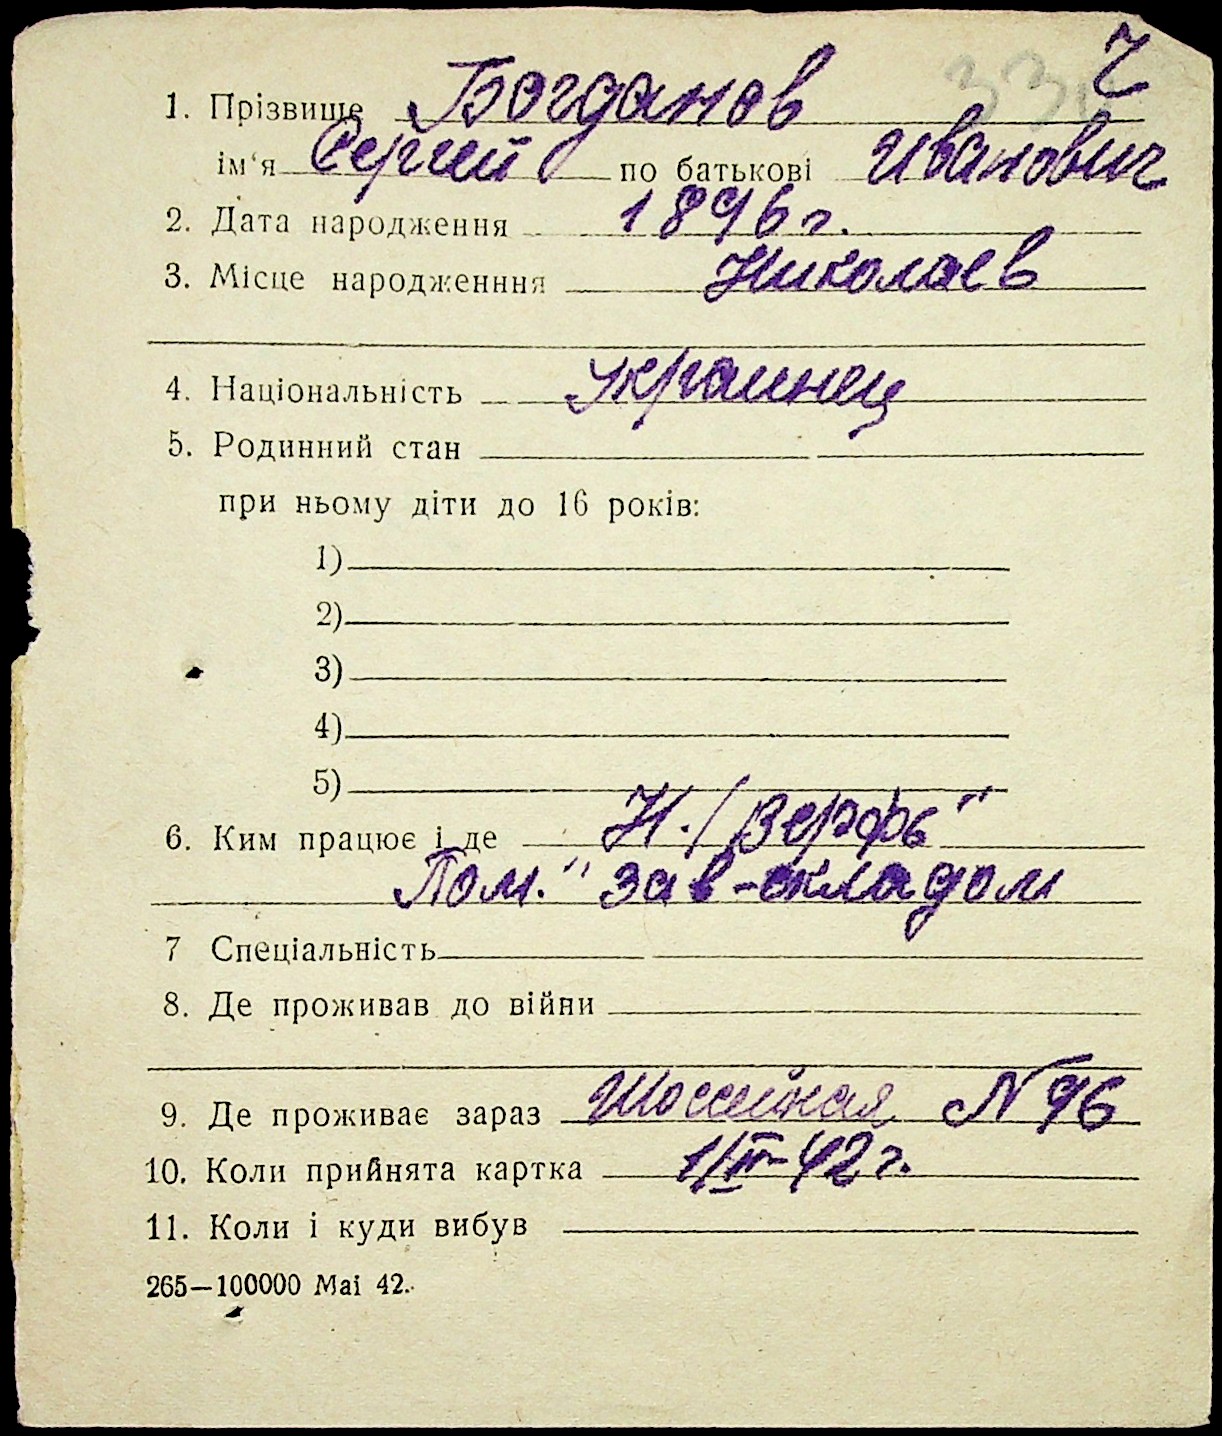 Ч
33
1. Прізвище Богданов
ім'я Сергей по батькові Иванович
2. Дата народження 1896 г.
3. Місце народженння Николаев
4. Національність украинец
5. Родинний стан
при ньому діти до 16 років:
1)
2)
3)
4)
5)
6. Ким працює і де Н./Верфь"
Пом." зав-складом
7 Спеціальність
8. Де проживав до війни
9. Де проживає зараз Шоссейная N 96
10. Коли прийнята картка 42 г.
11. Коли і куди вибув
265—100000 Mai 42.